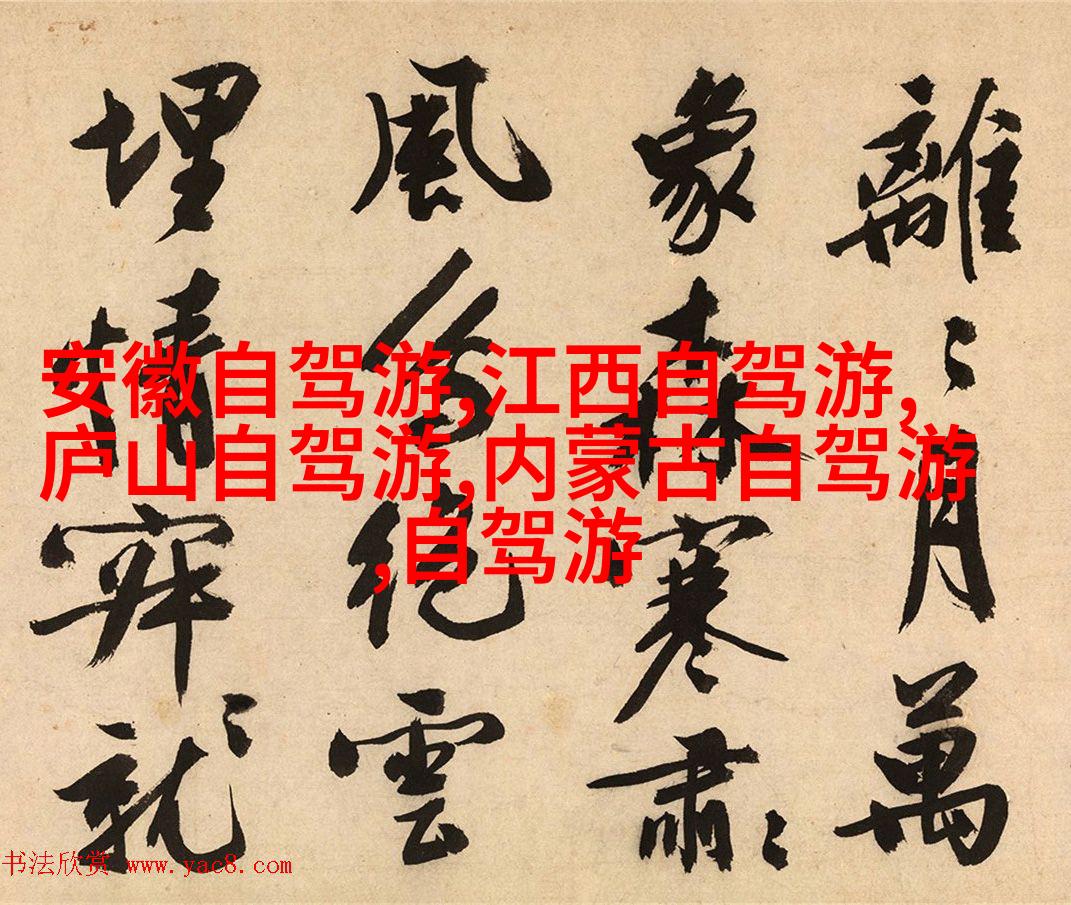 離〻月萬
象森寒肅〻
風絕雲
埋情就〻
安徽自驾游,江西自驾游,
庐山自驾游,内蒙古自驾游
,自驾游
书法欣赏 www.yac8.com